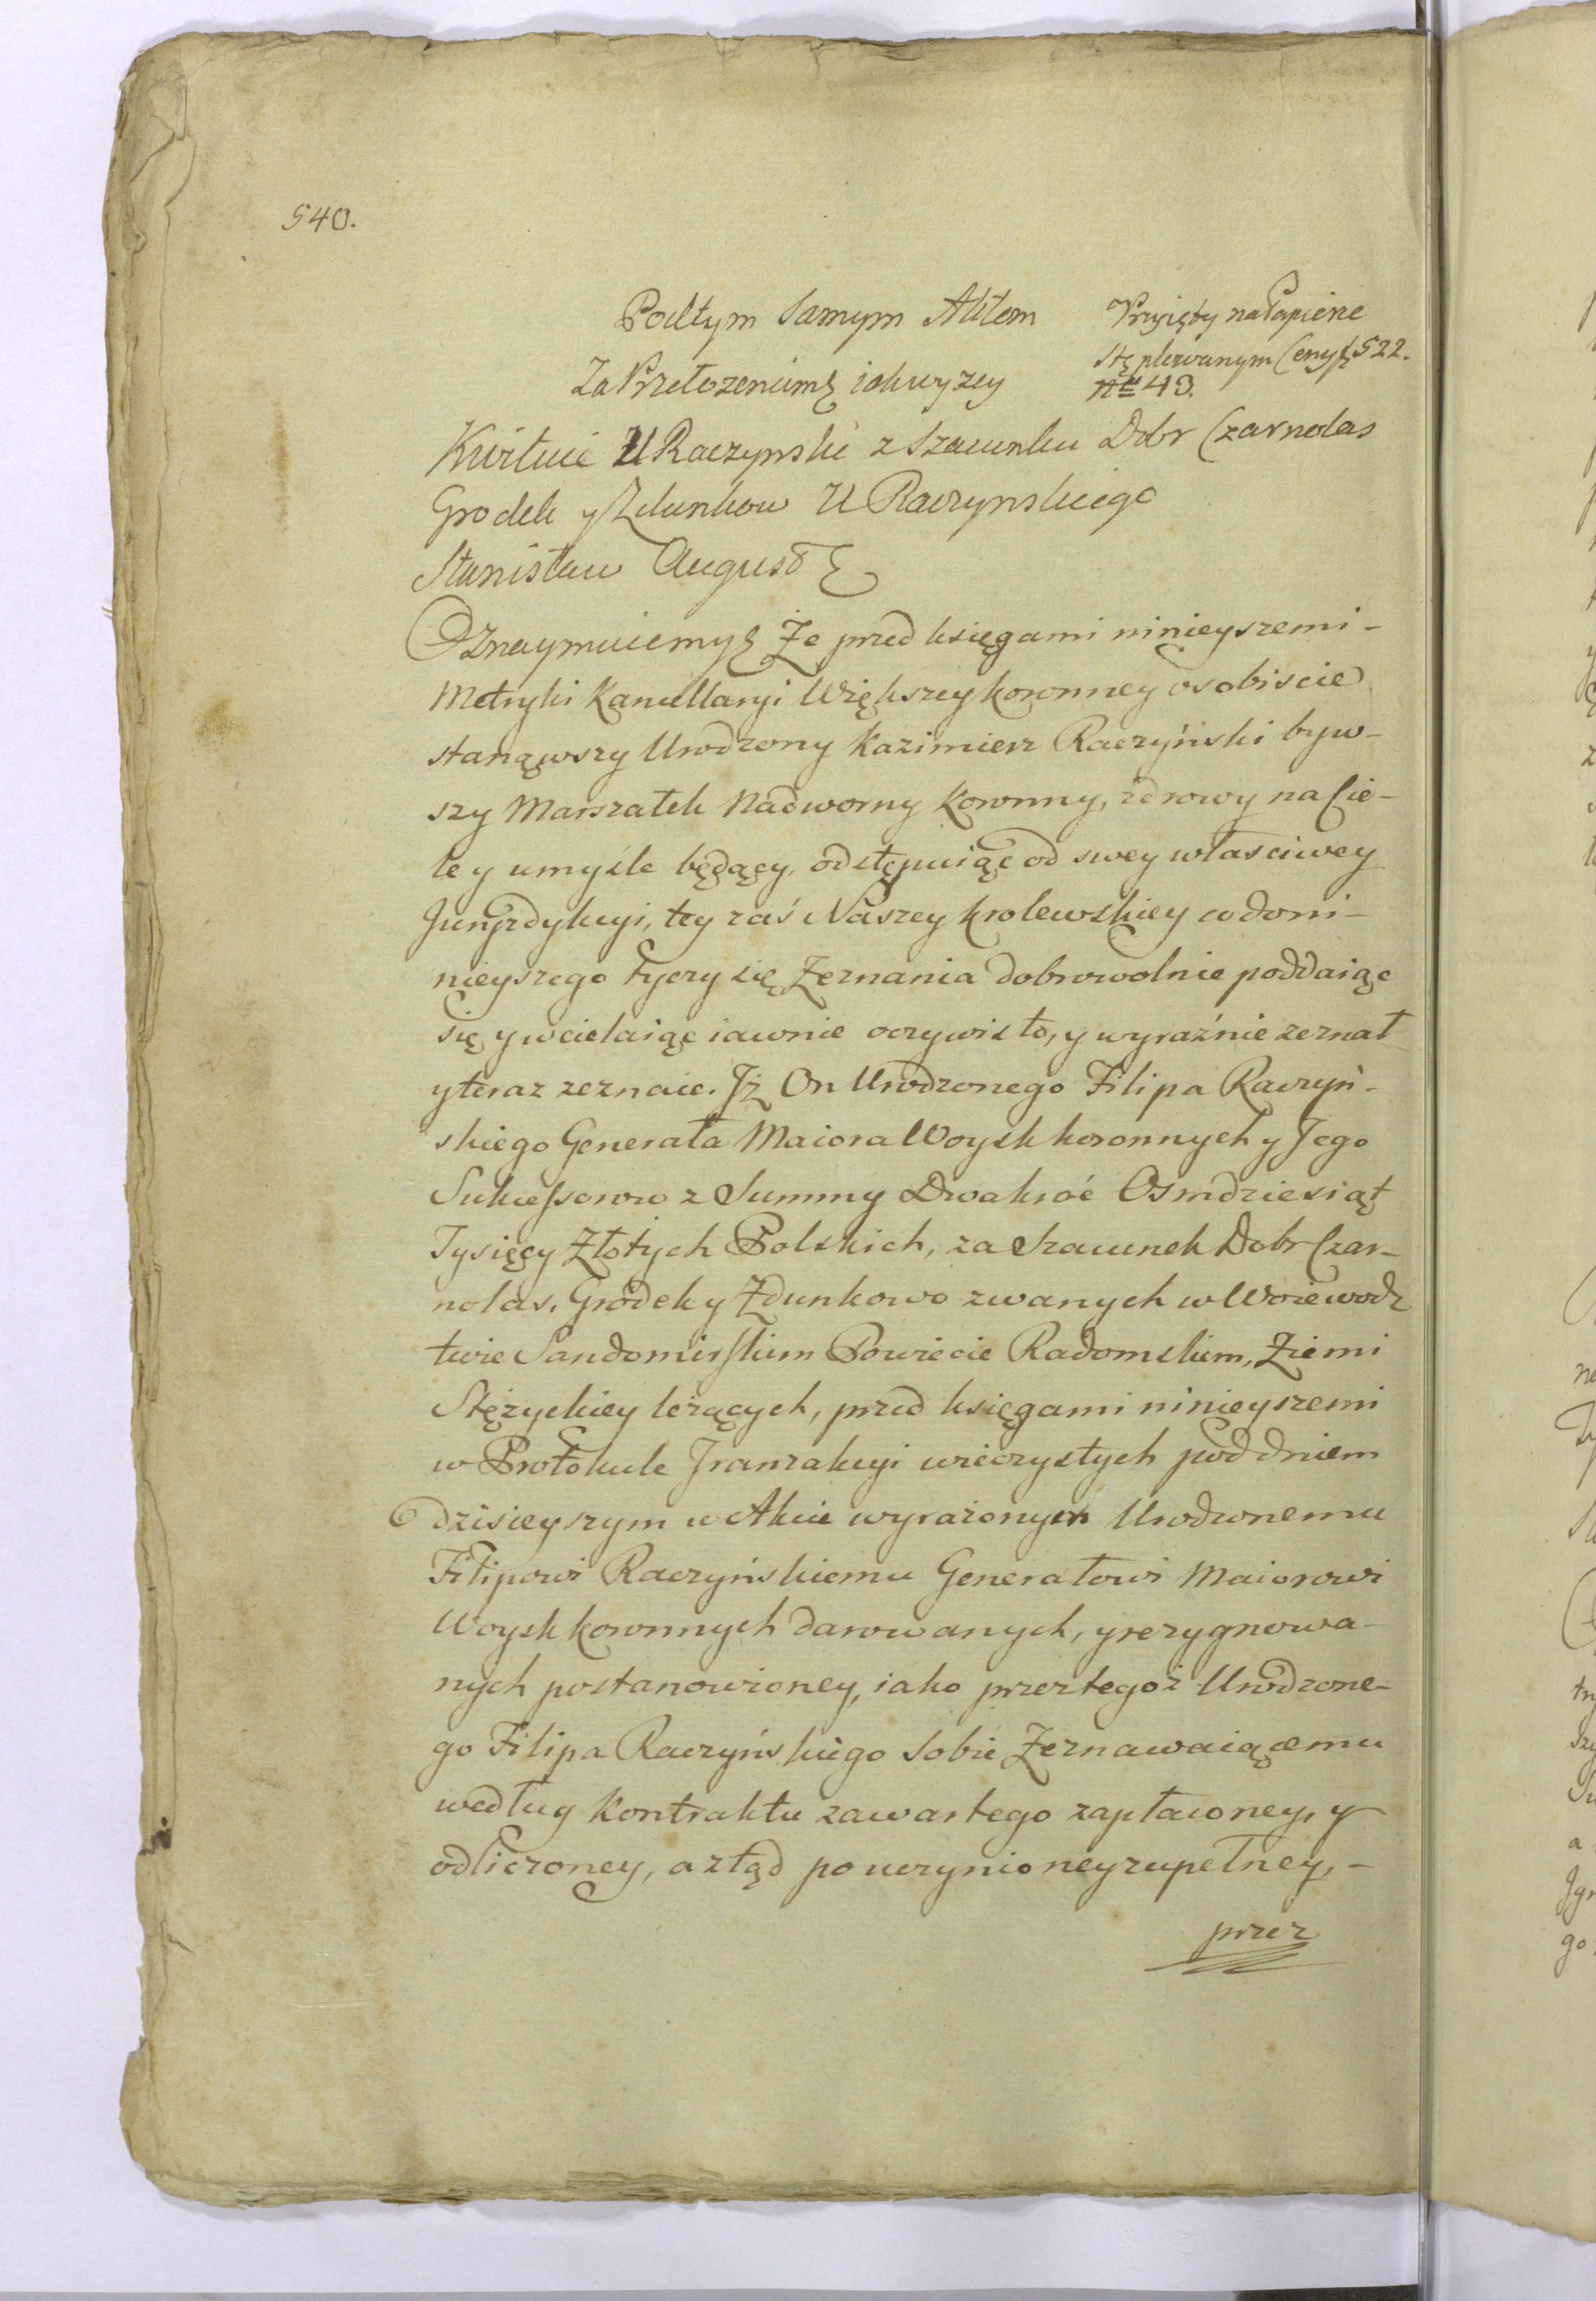 540.
Pod tym samym Aktem
Przyięty na Papierze
Stęplowanym Ceny fl 522.
Nro 43.
Za Przełożeniem & iakwyzey
Kwituie U Raczynski z Szacunku Dobr Czarnolas
Grodek y Zdunkow U Raczynskiego
Stanisław August &
Oznaymuiemy & Że przed księgami ninieyszemi -
Metryki Kancellaryi Większey koronney osobiscie
stanąwszy Urodzony Kazimierz Raczyński byw-
szy Marszałek Nadworny Koronny, zdrowy na Cie-
le y umyśle będący, odstępuiąc od swey własciwey
Juryzdykcyi, tey zaś Naszey krolewskiey co do ni-
nieyszego tyczy się Zeznania dobrowolnie poddaiąc
się y wcielaiąc iawnie oczywisto, y wyraźnie zeznał
y teraz zeznaie. Jż On Urodzonego Filipa Raczyń-
skiego Generała Maiora Woysk koronnych y Jego
Sukcessorow z Summy Dwakroć Osmdziesiąt
Tysięcy Złotych Polskich, za Szacunek Dobr Czar-
nolas, Gródek y Zdunkowo zwanych w Woiewodz
twie Sandomirskim Powiecie Radomskim, Ziemi
Stężyckiey leżących, przed księgami ninieyszemi
w Protokule Tranzakcyi wieczystych pod dniem
dzisieyszym w Akcie wyrażonych Urodzonemu
Filipowi Raczyńskiemu Generałowi Maiorowi
Woysk koronnych darowanych, y rezygnowa-
nych postanowioney, iako przez tegoż Urodzone-
go Filipa Raczyńskiego Sobie Zeznawaiącemu
według Kontraktu zawartego zapłaconey, y
odliczoney, a ztąd po uczynioney zupełney, -
przez